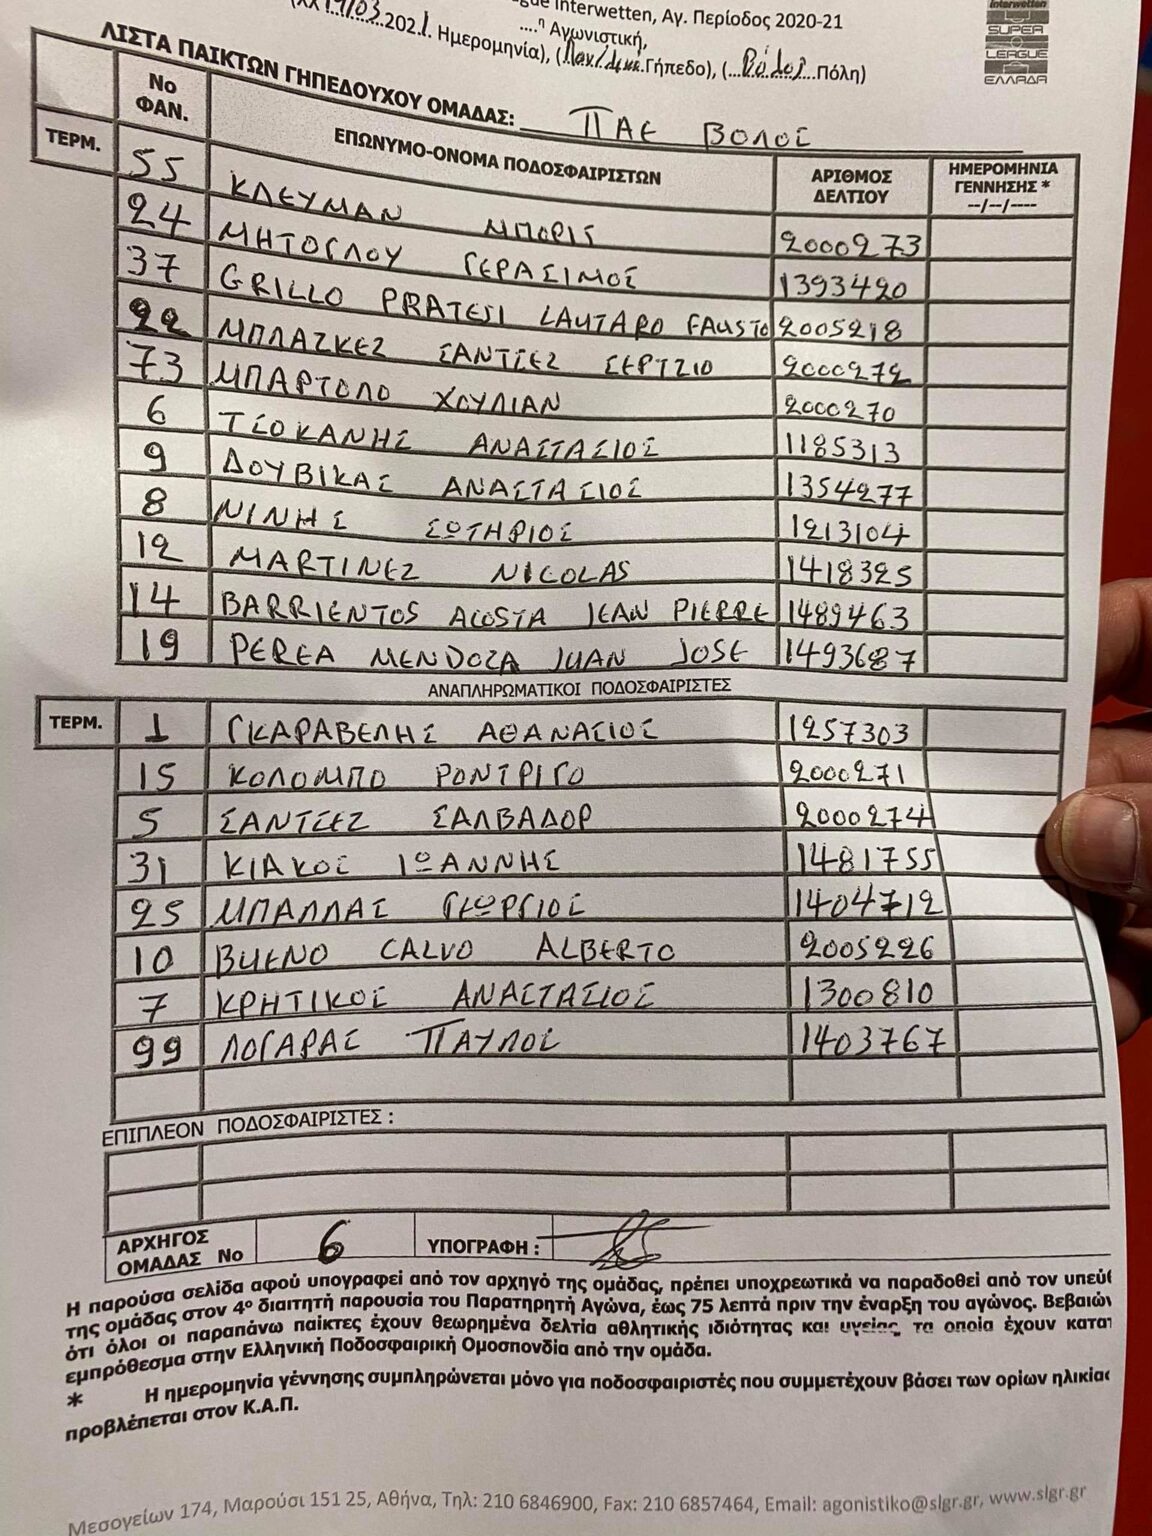 Interwetten, Αγ. Περίοδος 2020-21
Interwetten
SUPER
LEAGUE
ΕΛΛΑΔΑ
....η Αγωνιστική,
03...2021. Ημερομηνία), (Γήπεδο), (...Βόλος...Πόλη)
ΛΙΣΤΑ ΠΑΙΚΤΩΝ ΓΗΠΕΔΟΥΧΟΥ ΟΜΑΔΑΣ: ΠΑΕ ΒΟΛΟΣ
No ΦΑΝ. ΕΠΩΝΥΜΟ-ΟΝΟΜΑ ΠΟΔΟΣΦΑΙΡΙΣΤΩΝ ΑΡΙΘΜΟΣ ΔΕΛΤΙΟΥ ΗΜΕΡΟΜΗΝΙΑ ΓΕΝΝΗΣΗΣ * --/--/----
ΤΕΡΜ. 55 ΚΛΕΥΜΑΝ ΜΠΟΡΙΣ 2000273
24 ΜΗΤΟΓΛΟΥ ΓΕΡΑΣΙΜΟΣ 1393420
37 GRILLO PRATESI LAUTARO FAUSTO 2005218
22 ΜΠΛΑΣΚΕΖ ΣΑΝΤΣΕΖ ΣΕΡΤΖΙΟ 2000272
73 ΜΠΑΡΤΟΛΟ ΧΟΥΛΙΑΝ 2000270
6 ΤΣΟΚΑΝΗΣ ΑΝΑΣΤΑΣΙΟΣ 1185313
9 ΔΟΥΒΙΚΑΣ ΑΝΑΣΤΑΣΙΟΣ 1354277
8 ΝΙΝΗΣ ΣΩΤΗΡΙΟΣ 1213104
12 MARTINEZ NICOLAS 1418325
14 BARRIENTOS ACOSTA JEAN PIERRE 1489463
19 PEREA MENDOZA JUAN JOSE 1493687
ΑΝΑΠΛΗΡΩΜΑΤΙΚΟΙ ΠΟΔΟΣΦΑΙΡΙΣΤΕΣ
ΤΕΡΜ. 1 ΓΚΑΡΑΒΕΛΗΣ ΑΘΑΝΑΣΙΟΣ 1257303
15 ΚΟΛΟΜΠΟ ΡΟΝΤΡΙΓΟ 2000271
5 ΣΑΝΤΣΕΖ ΣΑΛΒΑΔΟΡ 2000274
31 ΚΙΑΚΟΣ ΙΩΑΝΝΗΣ 1481755
25 ΜΠΑΛΛΑΣ ΓΕΩΡΓΙΟΣ 1404712
10 BUENO CALVO ALBERTO 2005226
7 ΚΡΗΤΙΚΟΣ ΑΝΑΣΤΑΣΙΟΣ 1300810
99 ΛΟΓΑΡΑΣ ΠΑΥΛΟΣ 1403767
ΕΠΙΠΛΕΟΝ ΠΟΔΟΣΦΑΙΡΙΣΤΕΣ :
ΑΡΧΗΓΟΣ ΟΜΑΔΑΣ No 6 ΥΠΟΓΡΑΦΗ :
Η παρούσα σελίδα αφού υπογραφεί από τον αρχηγό της ομάδας, πρέπει υποχρεωτικά να παραδοθεί από τον υπεύθ
της ομάδας στον 4ο διαιτητή παρουσία του Παρατηρητή Αγώνα, έως 75 λεπτά πριν την έναρξη του αγώνος. Βεβαιών
ότι όλοι οι παραπάνω παίκτες έχουν θεωρημένα δελτία αθλητικής ιδιότητας και υγείας, τα οποία έχουν κατατ
εμπρόθεσμα στην Ελληνική Ποδοσφαιρική Ομοσπονδία από την ομάδα.
* Η ημερομηνία γέννησης συμπληρώνεται μόνο για ποδοσφαιριστές που συμμετέχουν βάσει των ορίων ηλικίας
προβλέπεται στον Κ.Α.Π.
Μεσογείων 174, Μαρούσι 151 25, Αθήνα, Τηλ: 210 6846900, Fax: 210 6857464, Email: agonistiko@slgr.gr, www.slgr.gr